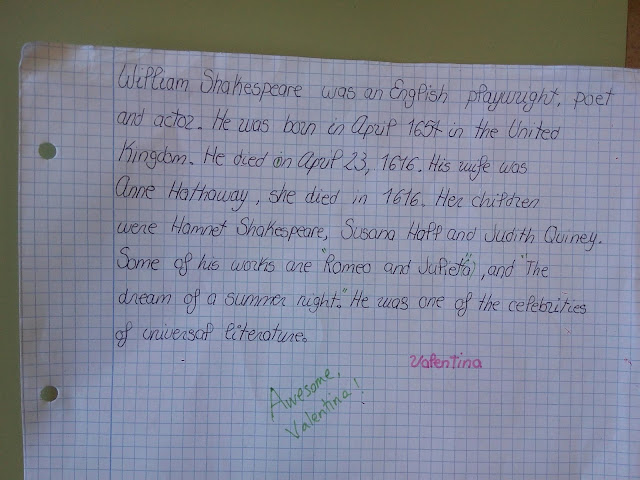 William Shakespeare was an English playwright, poet
and actor. He was born in April 1654 in the United
Kingdom. He died on April 23, 1616. His wife was
Anne Hathaway, she died in 1616. Her children
were Hamnet Shakespeare, Susana Hall and Judith Quiney.
Some of his works are "Romeo and Julieta", and "The
dream of a summer night." He was one of the celebrities
of universal literature.
Valentina
Awesome,
Valentina!